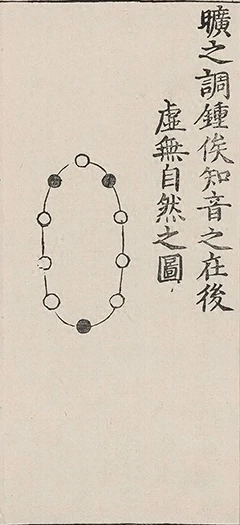 曠之調鍾俟知音之在後
虛無自然之圖